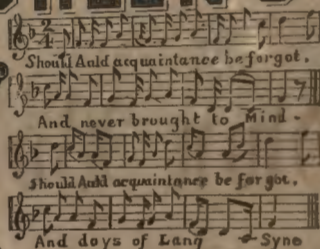 Should Auld acquaintance be forgot,
And never brought to Mind -
Should Auld acquaintance be forgot,
And days of Lang Syne